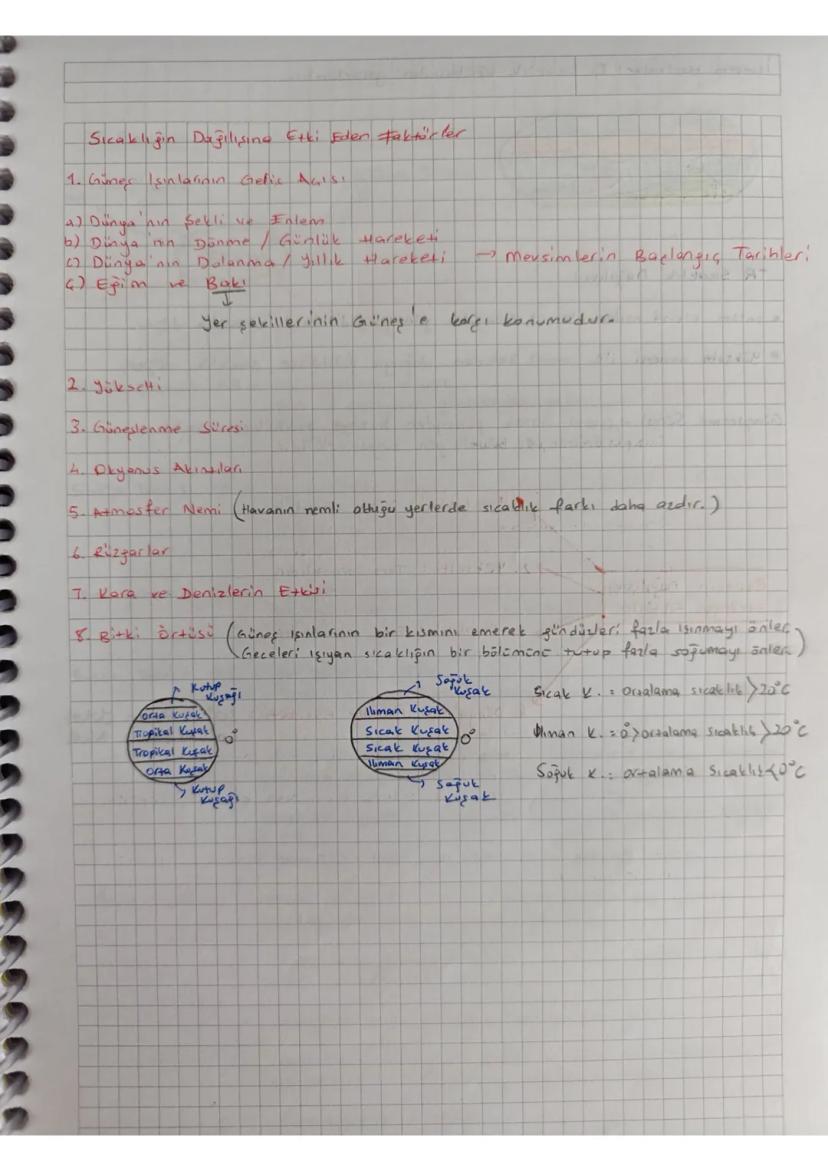 Sıcaklığın Dağılışına Etki Eden Faktörler
1. Güneş Işınlarının Geliş Açısı
a) Dünya'nın Şekli ve Enlem
b) Dünya'nın Dönme / Günlük Hareketi
c) Dünya'nın Dolanma / Yıllık Hareketi → Mevsimlerin Başlangıç Tarihleri
ç) Eğim ve Bakı
Yer şekillerinin Güneş'e karşı konumudur.
2. Yükselti
3. Güneşlenme Süresi
4. Okyanus Akıntıları
5. Atmosfer Nemi (Havanın nemli olduğu yerlerde sıcaklık farkı daha azdır.)
6. Rüzgarlar
7. Kara ve Denizlerin Etkisi
8. Bitki Örtüsü (Güneş ışınlarının bir kısmını emerek gündüzleri fazla ısınmayı önler.
Geceleri ışıyan sıcaklığın bir bölümünü tutup fazla soğumayı önler.)
Kutup
Kuşağı
Orta Kuşak
Tropikal Kuşak
0°
Tropikal Kuşak
Orta Kuşak
Kutup
Kuşağı
Soğuk
Kuşak
Ilıman Kuşak
Sıcak Kuşak
0°
Sıcak Kuşak
Ilıman Kuşak
Soğuk
Kuşak
Sıcak K. = Ortalama sıcaklık > 20°C
Ilıman K. = 0° > ortalama sıcaklık > 20°C
Soğuk K. = ortalama sıcaklık < 0°C